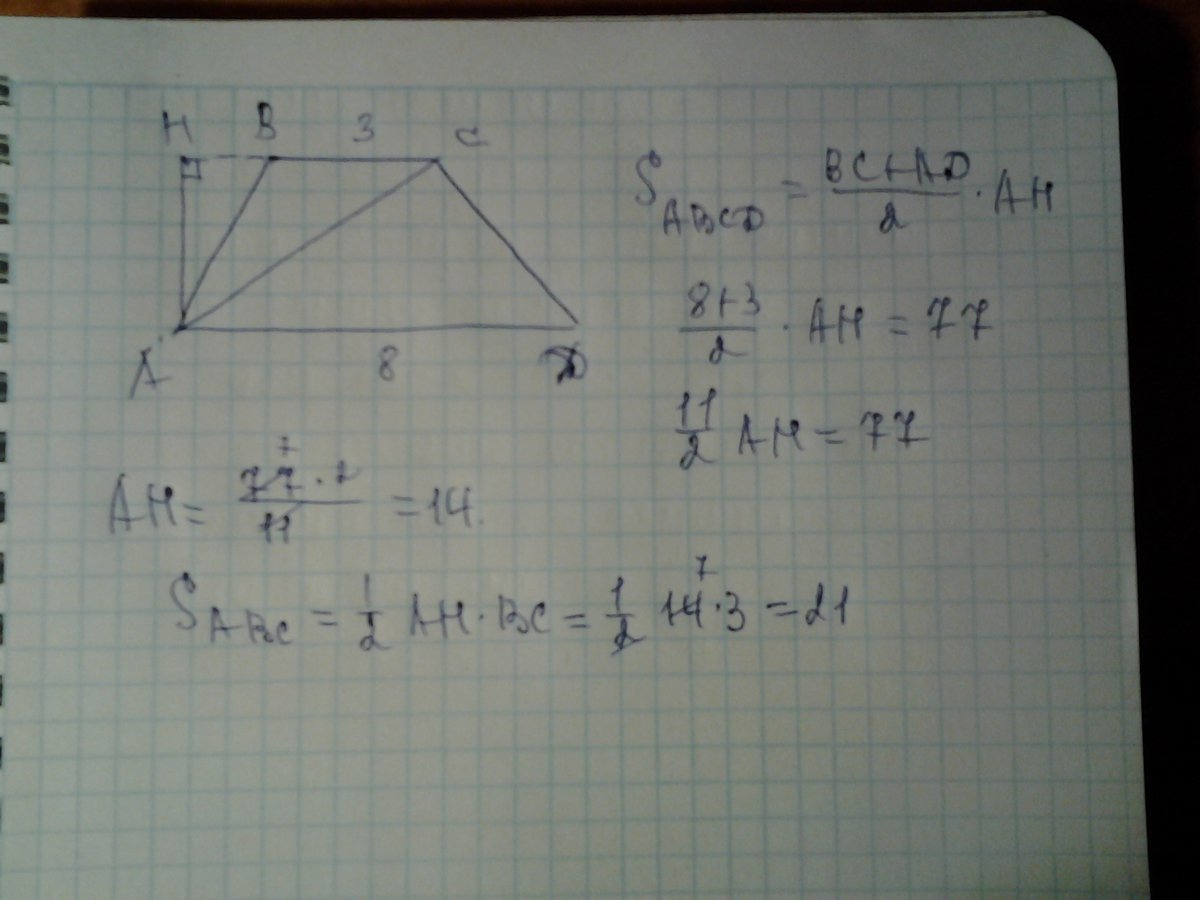 H B 3 C
A 8 D
S_ABCD = (BC+AD)/2 · AH
(8+3)/2 · AH = 77
11/2 AH = 77
AH = (77 · 2)/11 = 14.
7
S_ABC = 1/2 AH · BC = 1/2 14 · 3 = 21
7